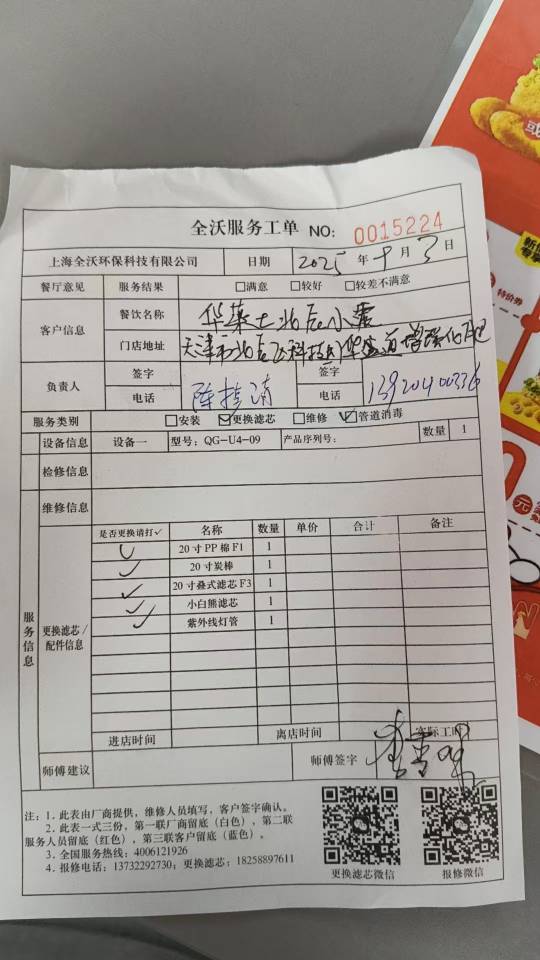 全沃服务工单 NO: 0015224
上海全沃环保科技有限公司 日期 2025 年 十 月 3 日
餐厅意见 服务结果 □满意 □较好 □较差不满意
客户信息 餐饮名称 华莱士北辰小
门店地址 天津市北辰区科技园华盛道增强化
负责人 签字 签字
电话 陈桂清 电话 13920400336
服务类别 □安装 ☑更换滤芯 □维修 ☑管道消毒
设备信息 设备一 型号: QG-U4-09 产品序列号: 数量 1
检修信息
维修信息
服务信息
更换滤芯/配件信息
是否更换请打✓ 名称 数量 单价 合计 备注
✓ 20寸PP棉F1 1
✓ 20寸炭棒 1
✓ 20寸叠式滤芯F3 1
✓ 小白熊滤芯 1
✓ 紫外线灯管 1
进店时间 离店时间 实际工时
师傅建议 师傅签字 李
注: 1. 此表由厂商提供, 维修人员填写, 客户签字确认。
2. 此表一式三份, 第一联厂商留底(白色), 第二联
服务人员留底(红色), 第三联客户留底(蓝色)。
3. 全国服务热线: 4006121926
4. 报修电话: 13732292730; 更换滤芯: 18258897611
更换滤芯微信 报修微信
特价券
元
或